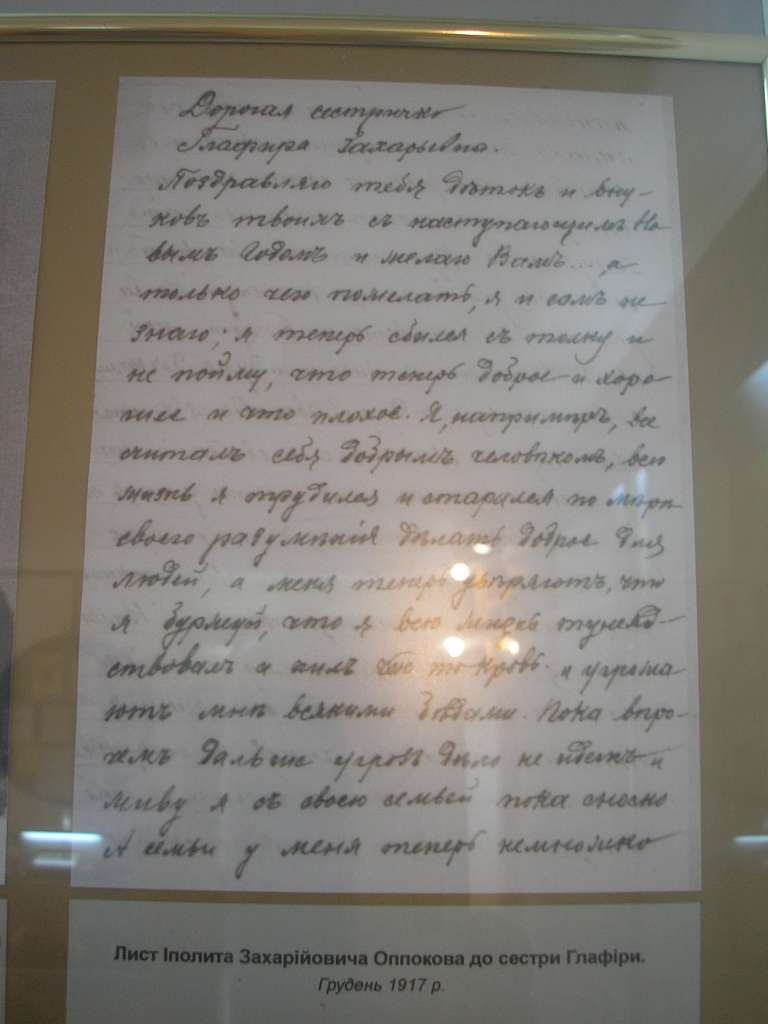 Дорогая сестричко
Глафира Захарьевна.
Поздравляю тебя дѣтокъ и вну-
ковъ твоихъ съ наступающимъ Но
вымъ Годомъ и желаю Вамъ... а
только чего пожелать, я и самъ не
знаю; я теперь сбился съ толку и
не пойму, что теперь доброе и хоро
шее и что плохое. Я, напримѣръ, все
считалъ себя добрымъ человѣкомъ, всю
жизнь я трудился и старался по мѣрѣ
своего разумѣнія дѣлать доброе для
людей, а меня теперь что
я буржуй, что я всю жизнь тунеяд-
ствовалъ и пилъ чью то кровь. и угрожа
ютъ мнѣ всякими бѣдами. Пока впро-
чемъ дальше угрозъ дѣло не идетъ и
живу я съ своею семьей пока сносно
А семьи у меня теперь немножко
Лист Іполита Захарійовича Оппокова до сестри Глафіри.
Грудень 1917 р.